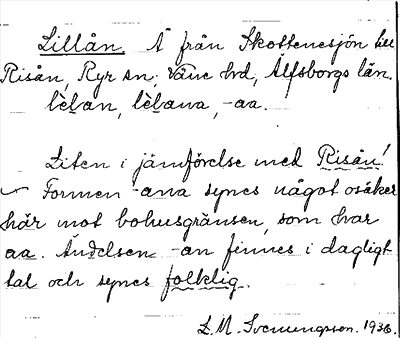 Lillån. Å från Skottenesjön till
Risån, Ryr sn; Väne hd, Älfsborgs län.
lèḷan, lèḷana, -aa.
Liten i jämförelse med Risån!
Formen -ana synes något osäker
här mot bohusgränsen, som har
aa. Ändelsen -an finnes i dagligt
tal och synes folklig.
L. M. Svenungsson. 1936.